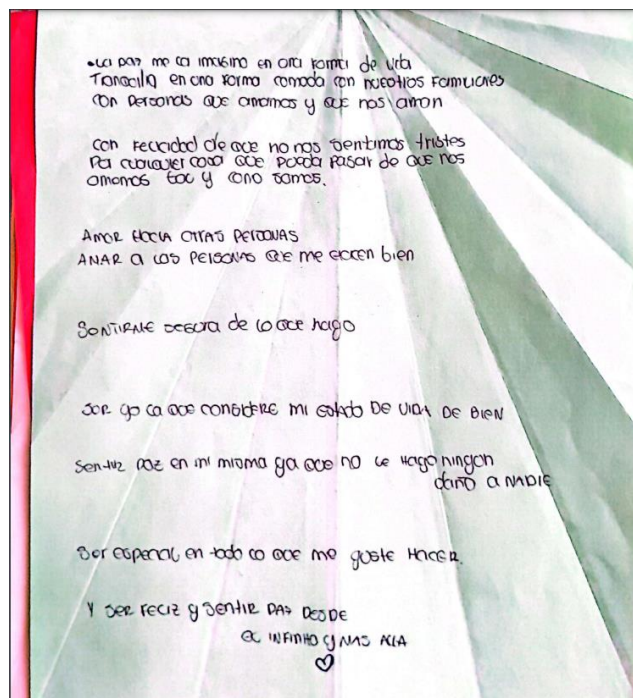 •La paz me la imagino en una forma de vida
Tranquila en una forma comoda con nuestros Familiares
con personas que amamos y que nos aman
con felicidad de que no nos sentimos tristes
Por cualquier cosa que pueda pasar de que nos
amamos tal y como somos.
AMOR HACIA OTRAS PERSONAS
AMAR A LAS PERSONAS QUE me hacen bien
SENTIRME SEGURA de lo que hago
SER yo la que CONSIDERE mi estado DE VIDA DE BIEN
Sentir paz en mi misma ya que no le Hago ningun
daño a NADIE
Ser especial en todo lo que me guste HACER.
Y SER FELIZ y SENTIR PAZ DESDE
EL INFINITO y MAS ALLA